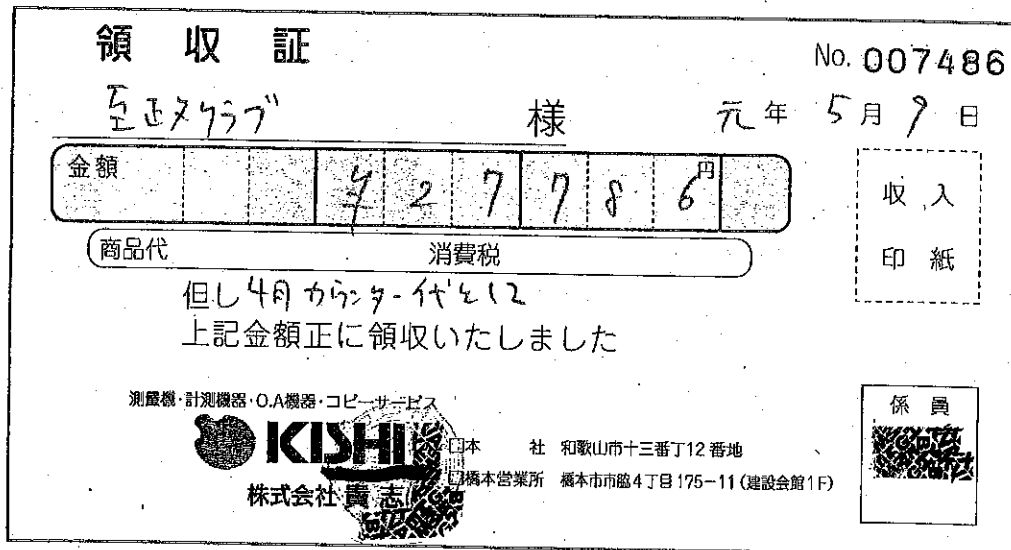 領収証
No. 007486
至正クラブ 様
元年 5月 9日
金額 ¥27786円
収入
印紙
商品代 消費税
但し 4月カウンター代として
上記金額正に領収いたしました
測量機・計測機器・O.A機器・コピーサービス
KISHI
株式会社 貴志
□本 社 和歌山市十三番丁12番地
□橋本営業所 橋本市市脇4丁目175-11(建設会館1F)
係員